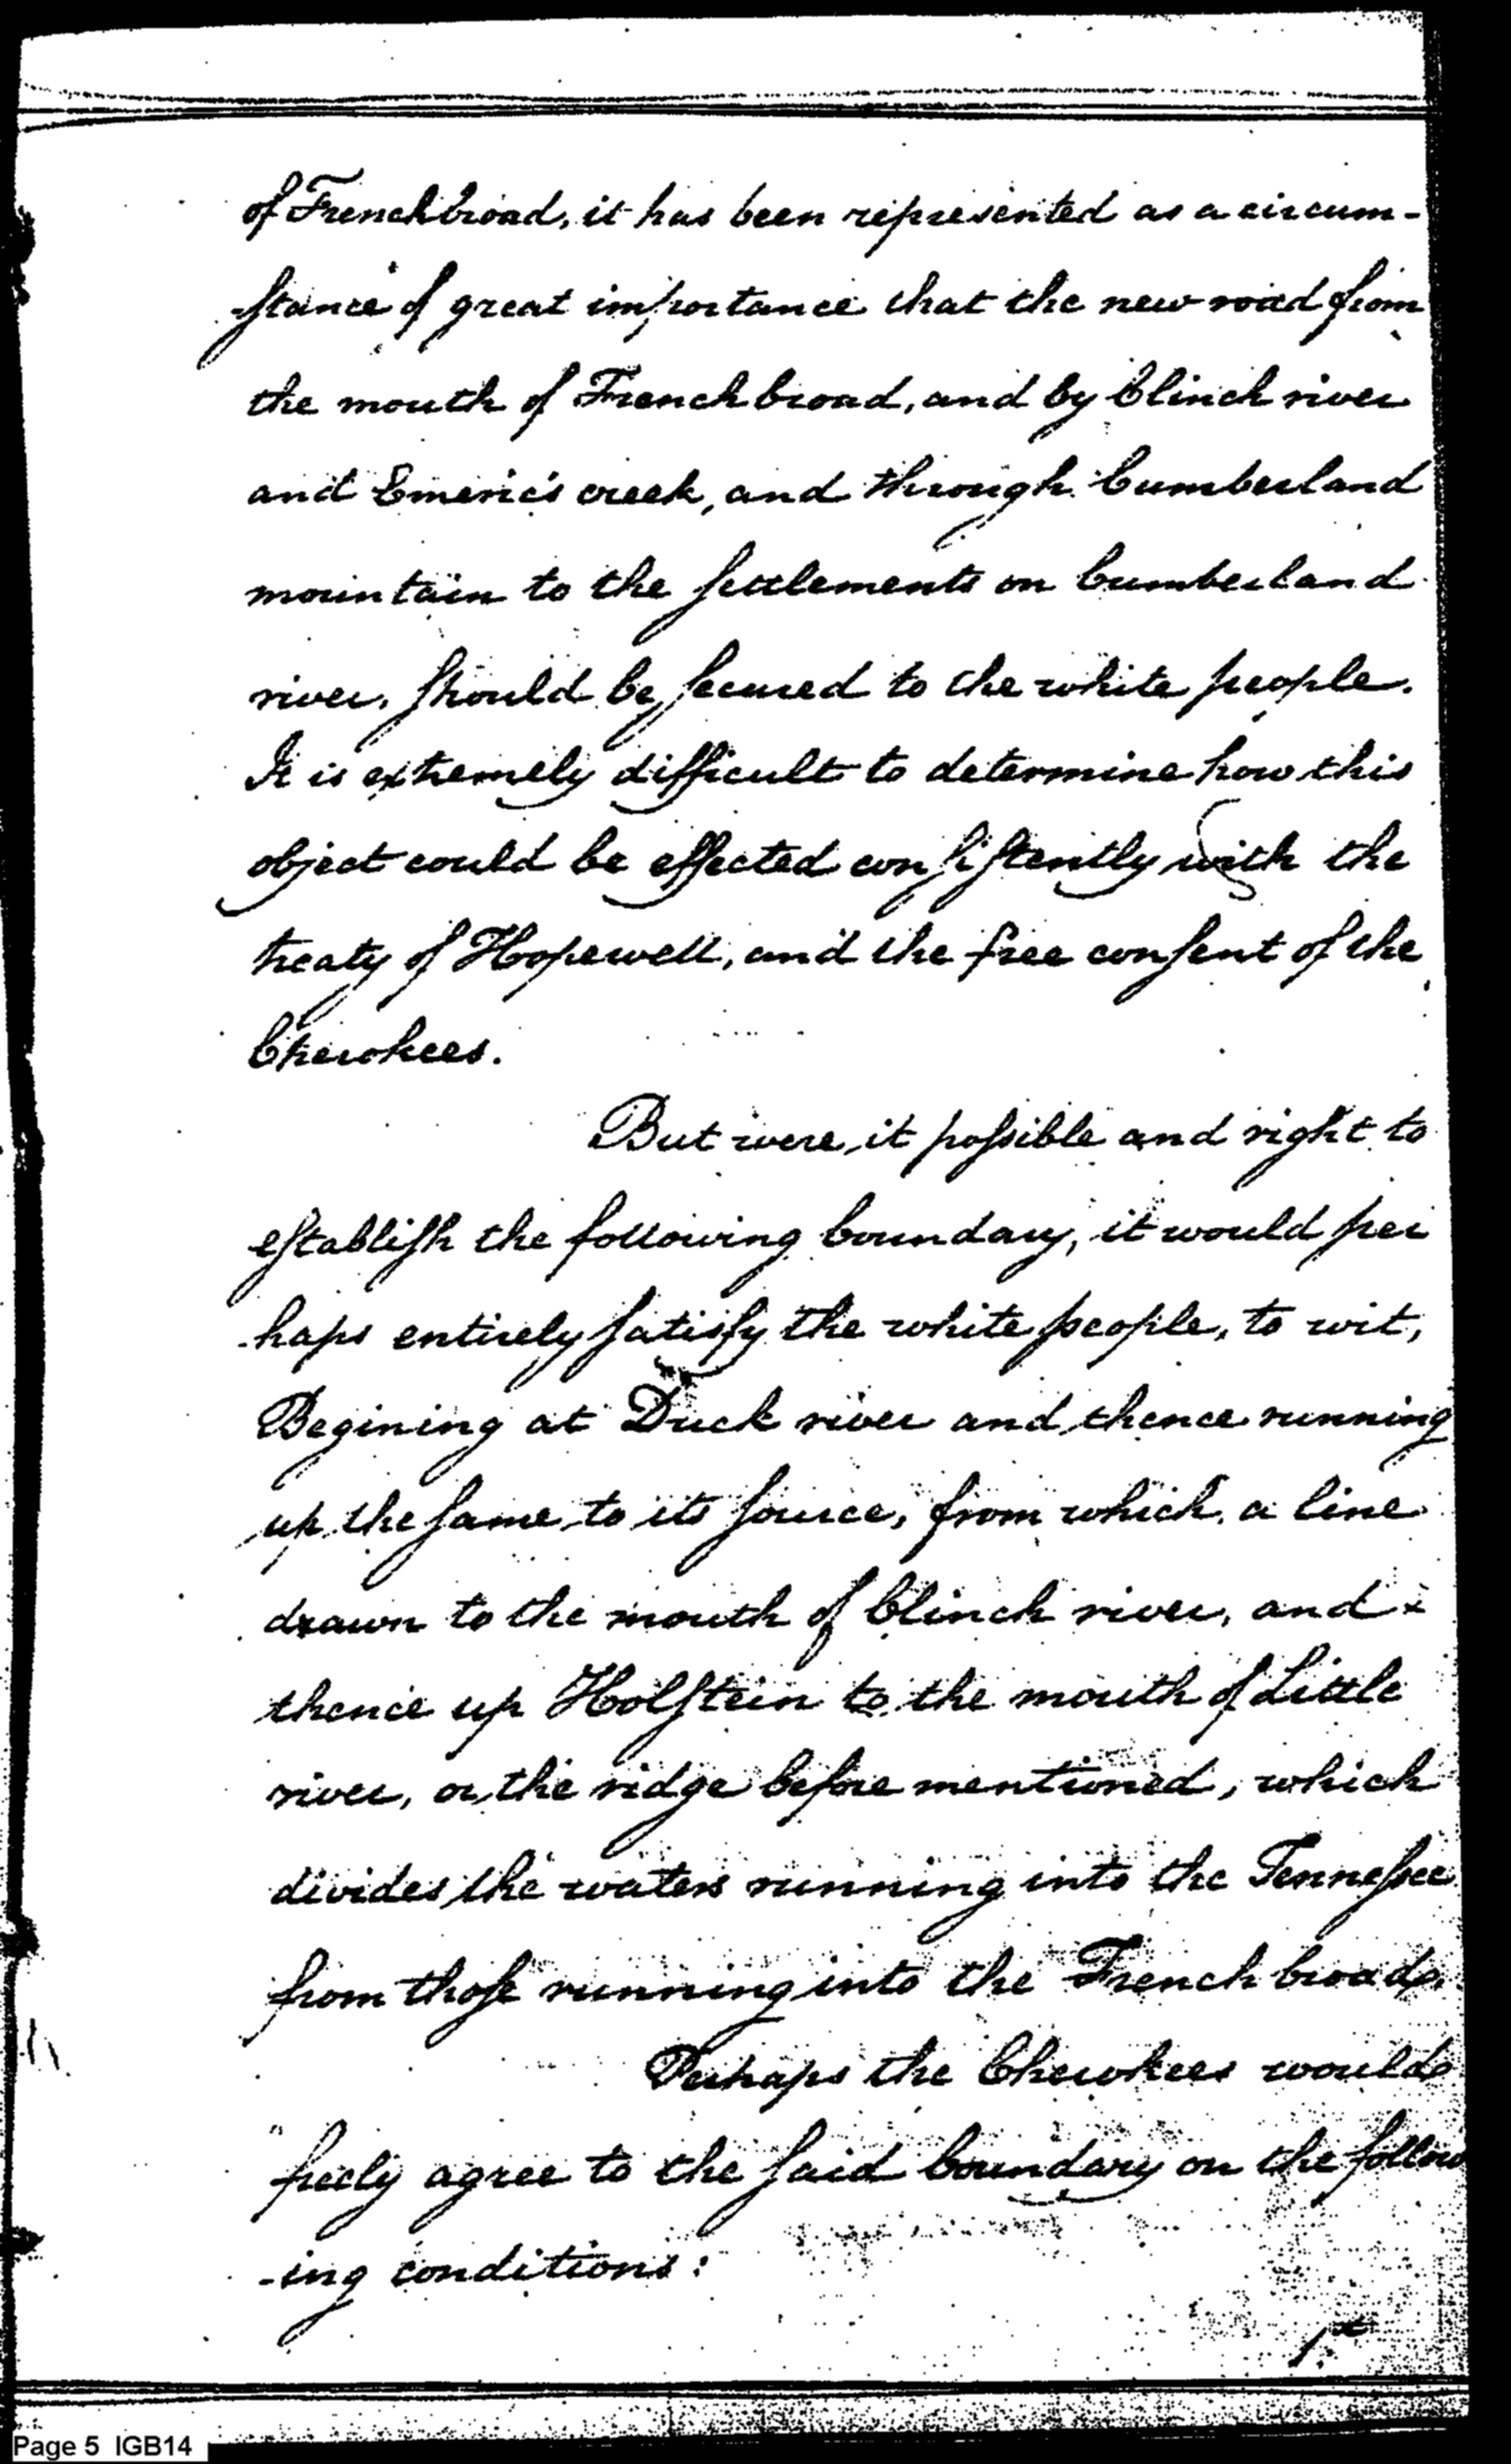 of Frenchbroad, it has been represented as a circum-
-stance of great importance that the new road from
the mouth of French broad, and by Clinch river
and Emeric's creek, and through Cumberland
mountain to the settlements on Cumberland
river, should be secured to the white people.
It is extremely difficult to determine how this
object could be effected consistently with the
treaty of Hopewell, and the free consent of the
Cherokees.
But were it possible and right to
establish the following boundary, it would per
-haps entirely satisfy the white people, to wit,
Begining at Duck river and thence running
up the same to its source, from which a line
drawn to the mouth of Clinch river, and
thence up Holstein to the mouth of Little
river, or the ridge before mentioned, which
divides the waters running into the Tennessee
from those running into the French broad.
Perhaps the Cherokees would
freely agree to the said boundary on the follow
-ing conditions:
1st
Page 5 IGB14